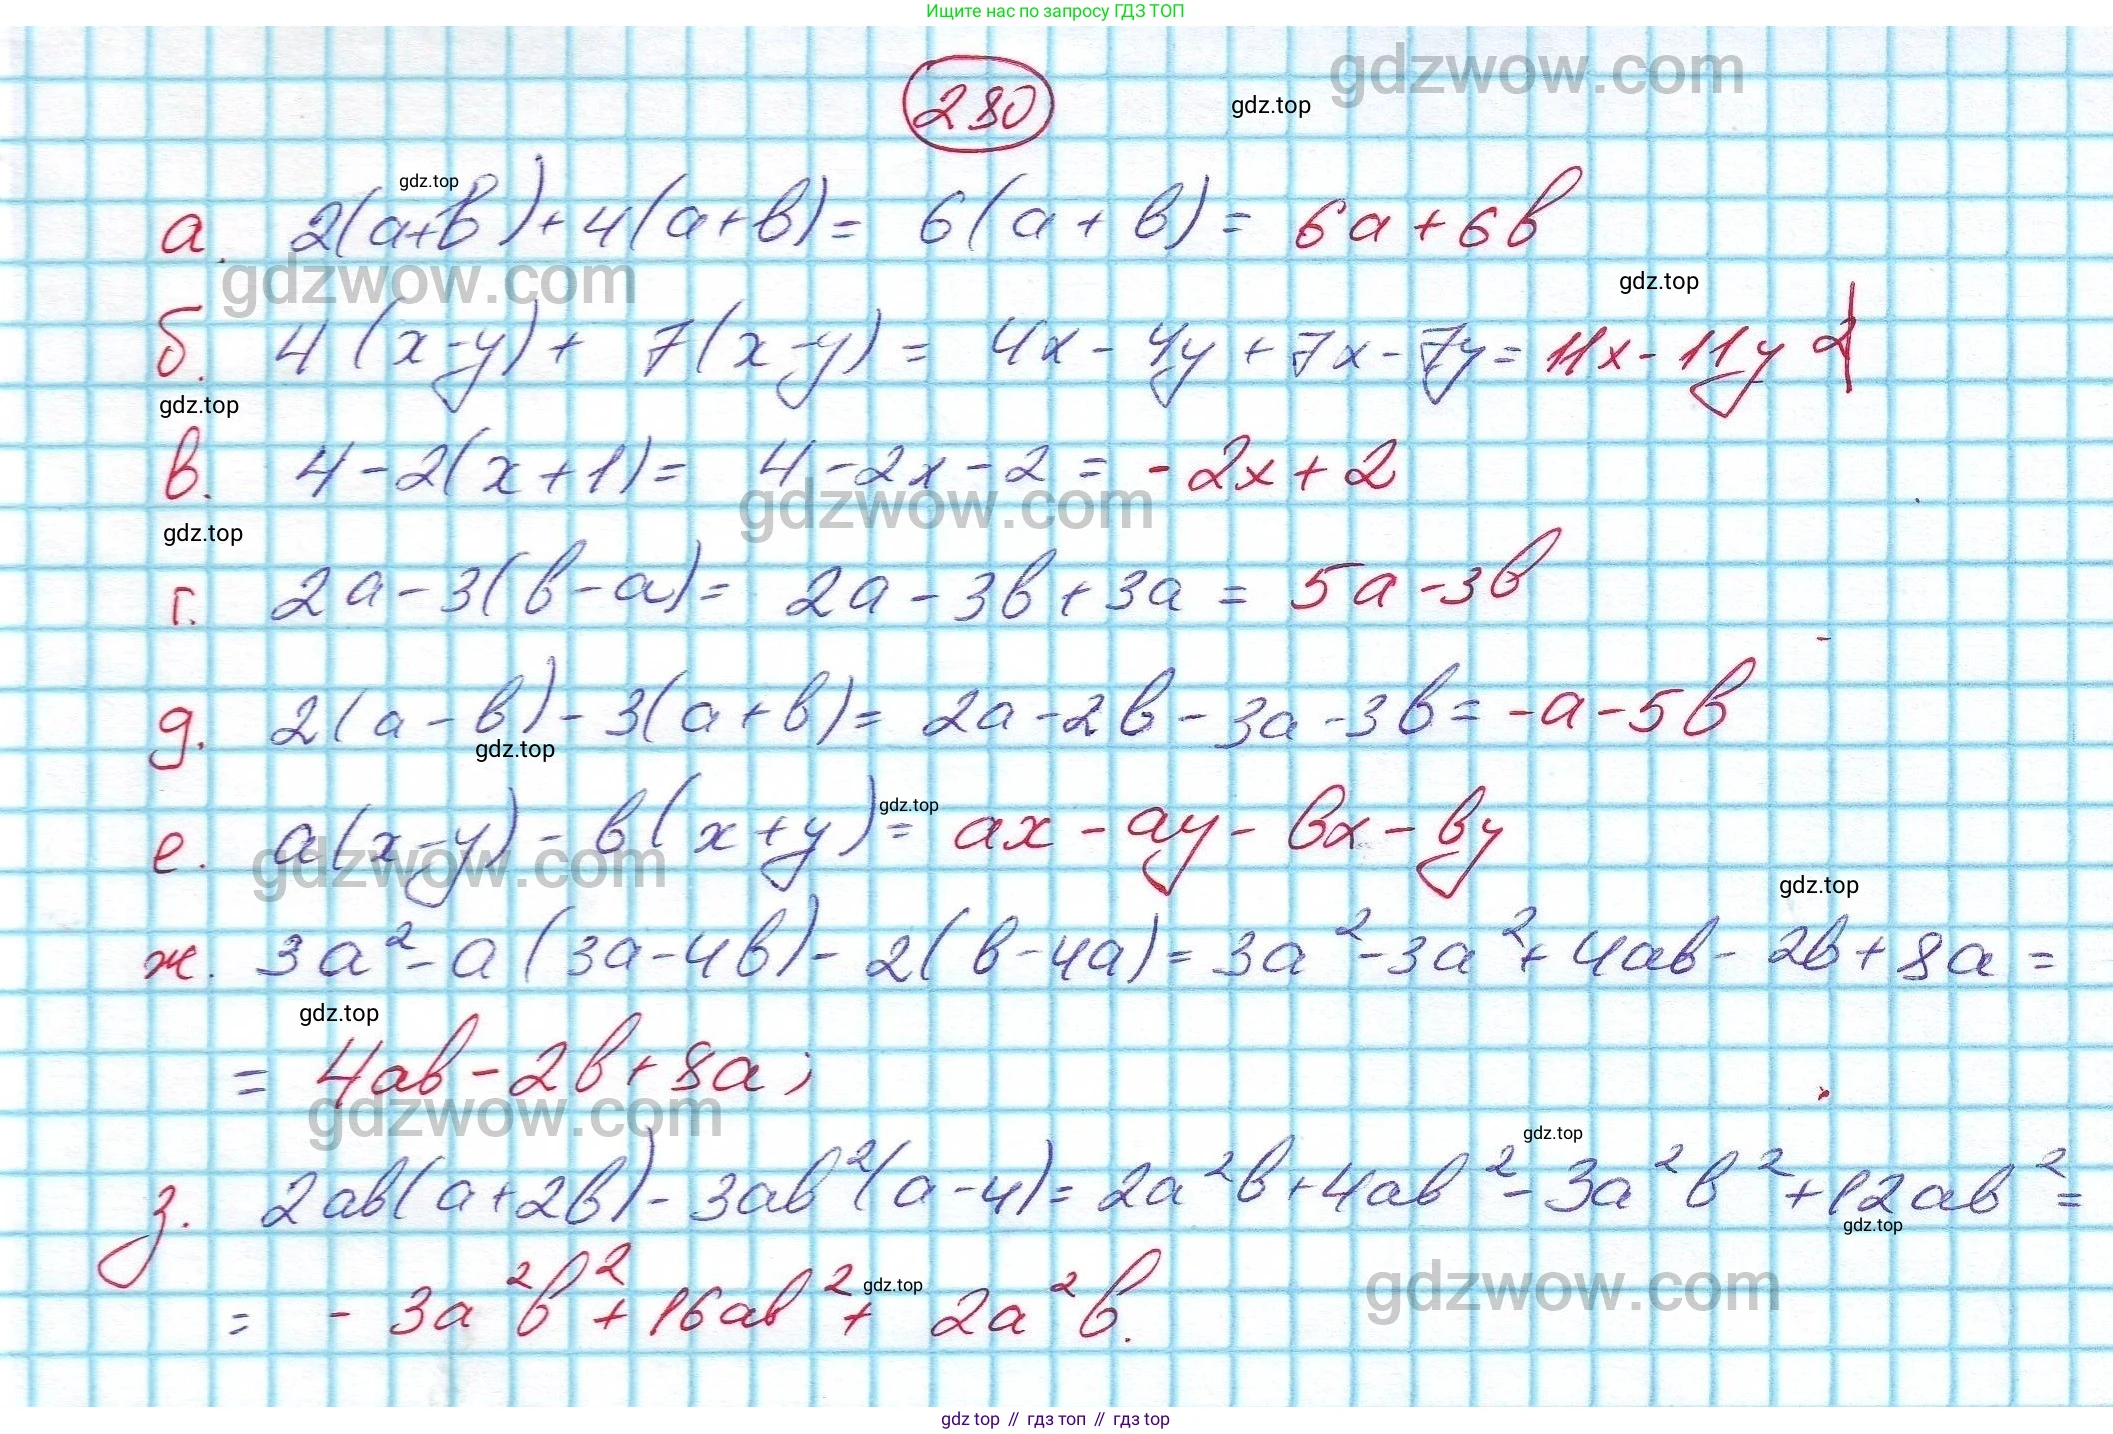 Ищите нас по запросу ГДЗ ТОП
280
gdzwow.com
gdz.top
gdz.top
а. 2(a+b)+4(a+b)= 6(a+b)= 6a+6b
gdzwow.com
gdz.top
б. 4(x-y)+ 7(x-y)= 4x-4y+7x-7y= 11x-11y
gdz.top
в. 4-2(x+1)= 4-2x-2= -2x+2
gdzwow.com
gdz.top
г. 2a-3(b-a)= 2a-3b+3a= 5a-3b
д. 2(a-b)-3(a+b)= 2a-2b-3a-3b= -a-5b
gdz.top
gdz.top
е. a(x-y)-b(x+y)= ax-ay-bx-by
gdzwow.com
gdz.top
ж. 3a²-a(3a-4b)-2(b-4a)=3a²-3a²+4ab-2b+8a=
gdz.top
= 4ab-2b+8a;
gdzwow.com
gdz.top
з. 2ab(a+2b)-3ab²(a-4)=2a²b+4ab²-3a²b²+12ab²=
gdz.top
gdz.top
gdzwow.com
= -3a²b²+16ab²+ 2a²b.
gdz top // гдз топ // гдз top